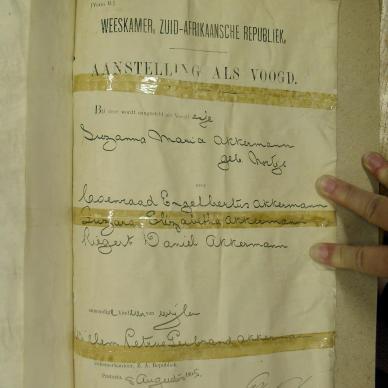 [Vorm B.]
WEESKAMER, ZUID-AFRIKAANSCHE REPUBLIEK.
AANSTELLING ALS VOOGD.
Bij deze wordt aangesteld als Voogd
Suzanna Maria Akkermann
geb Nortje
over
Coenraad Engelbertus Akkermann
Suzara Elizabetha Akkermann
Daniel Akkermann
minderjarige kinderen van wijlen
Willem Petrus Akkermann
Weeskamerkantoor, Z. A. Republiek,
Pretoria, 8 Augustus